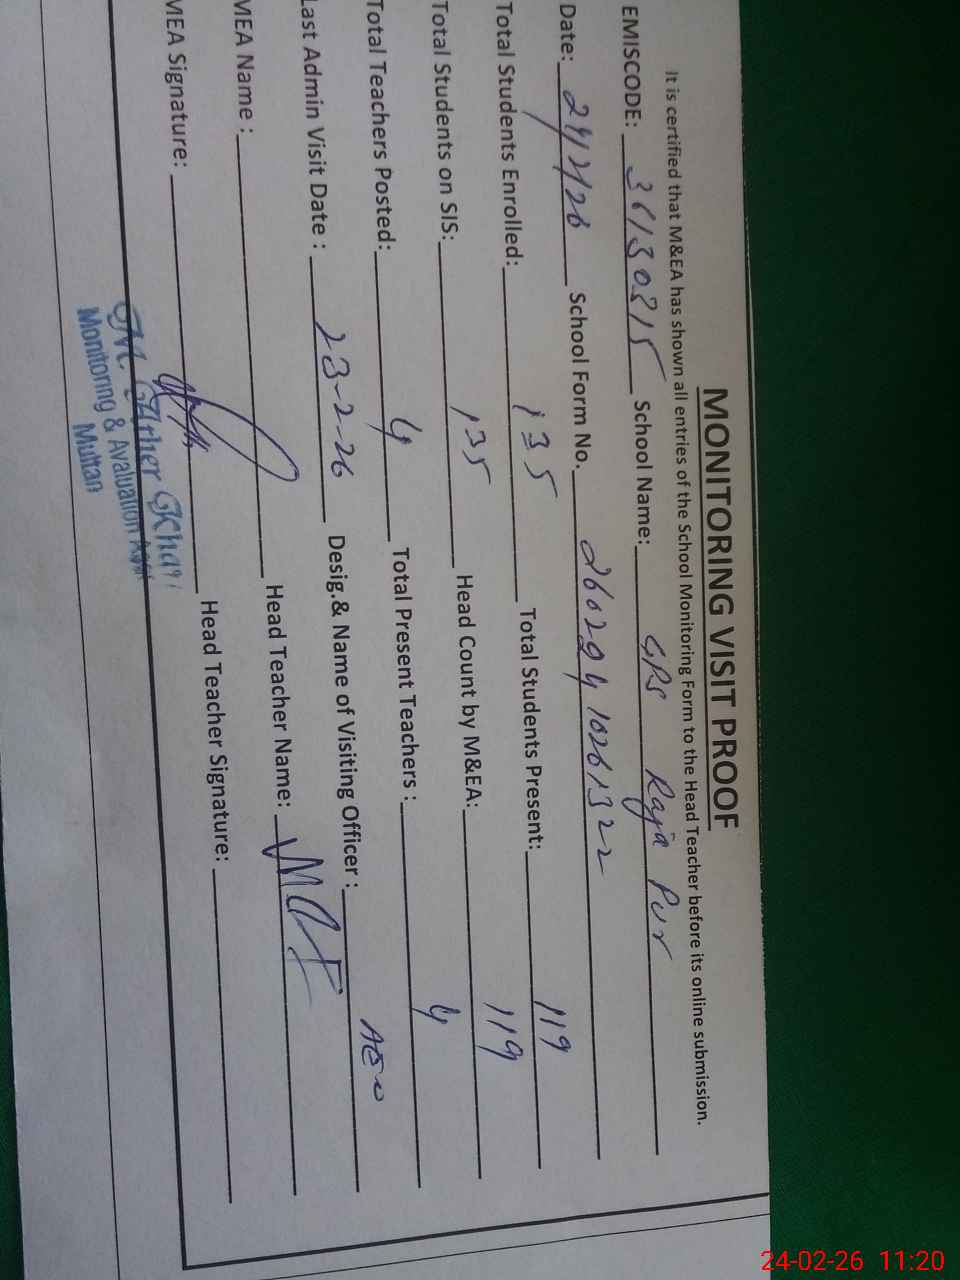 MONITORING VISIT PROOF
It is certified that M&EA has shown all entries of the School Monitoring Form to the Head Teacher before its online submission.
EMISCODE: 36130315 School Name: GPS Raja Pur
Date: 24/2/26 School Form No. 260224 102613 22
Total Students Enrolled: 135 Total Students Present: 119
Total Students on SIS: 135 Head Count by M&EA: 119
Total Teachers Posted: 4 Total Present Teachers : 4
Last Admin Visit Date : 23-2-26 Desig.& Name of Visiting Officer : AEO
MEA Name : Head Teacher Name:
MEA Signature: Head Teacher Signature:
Monitoring & Avaluation
Multan
24-02-26 11:20